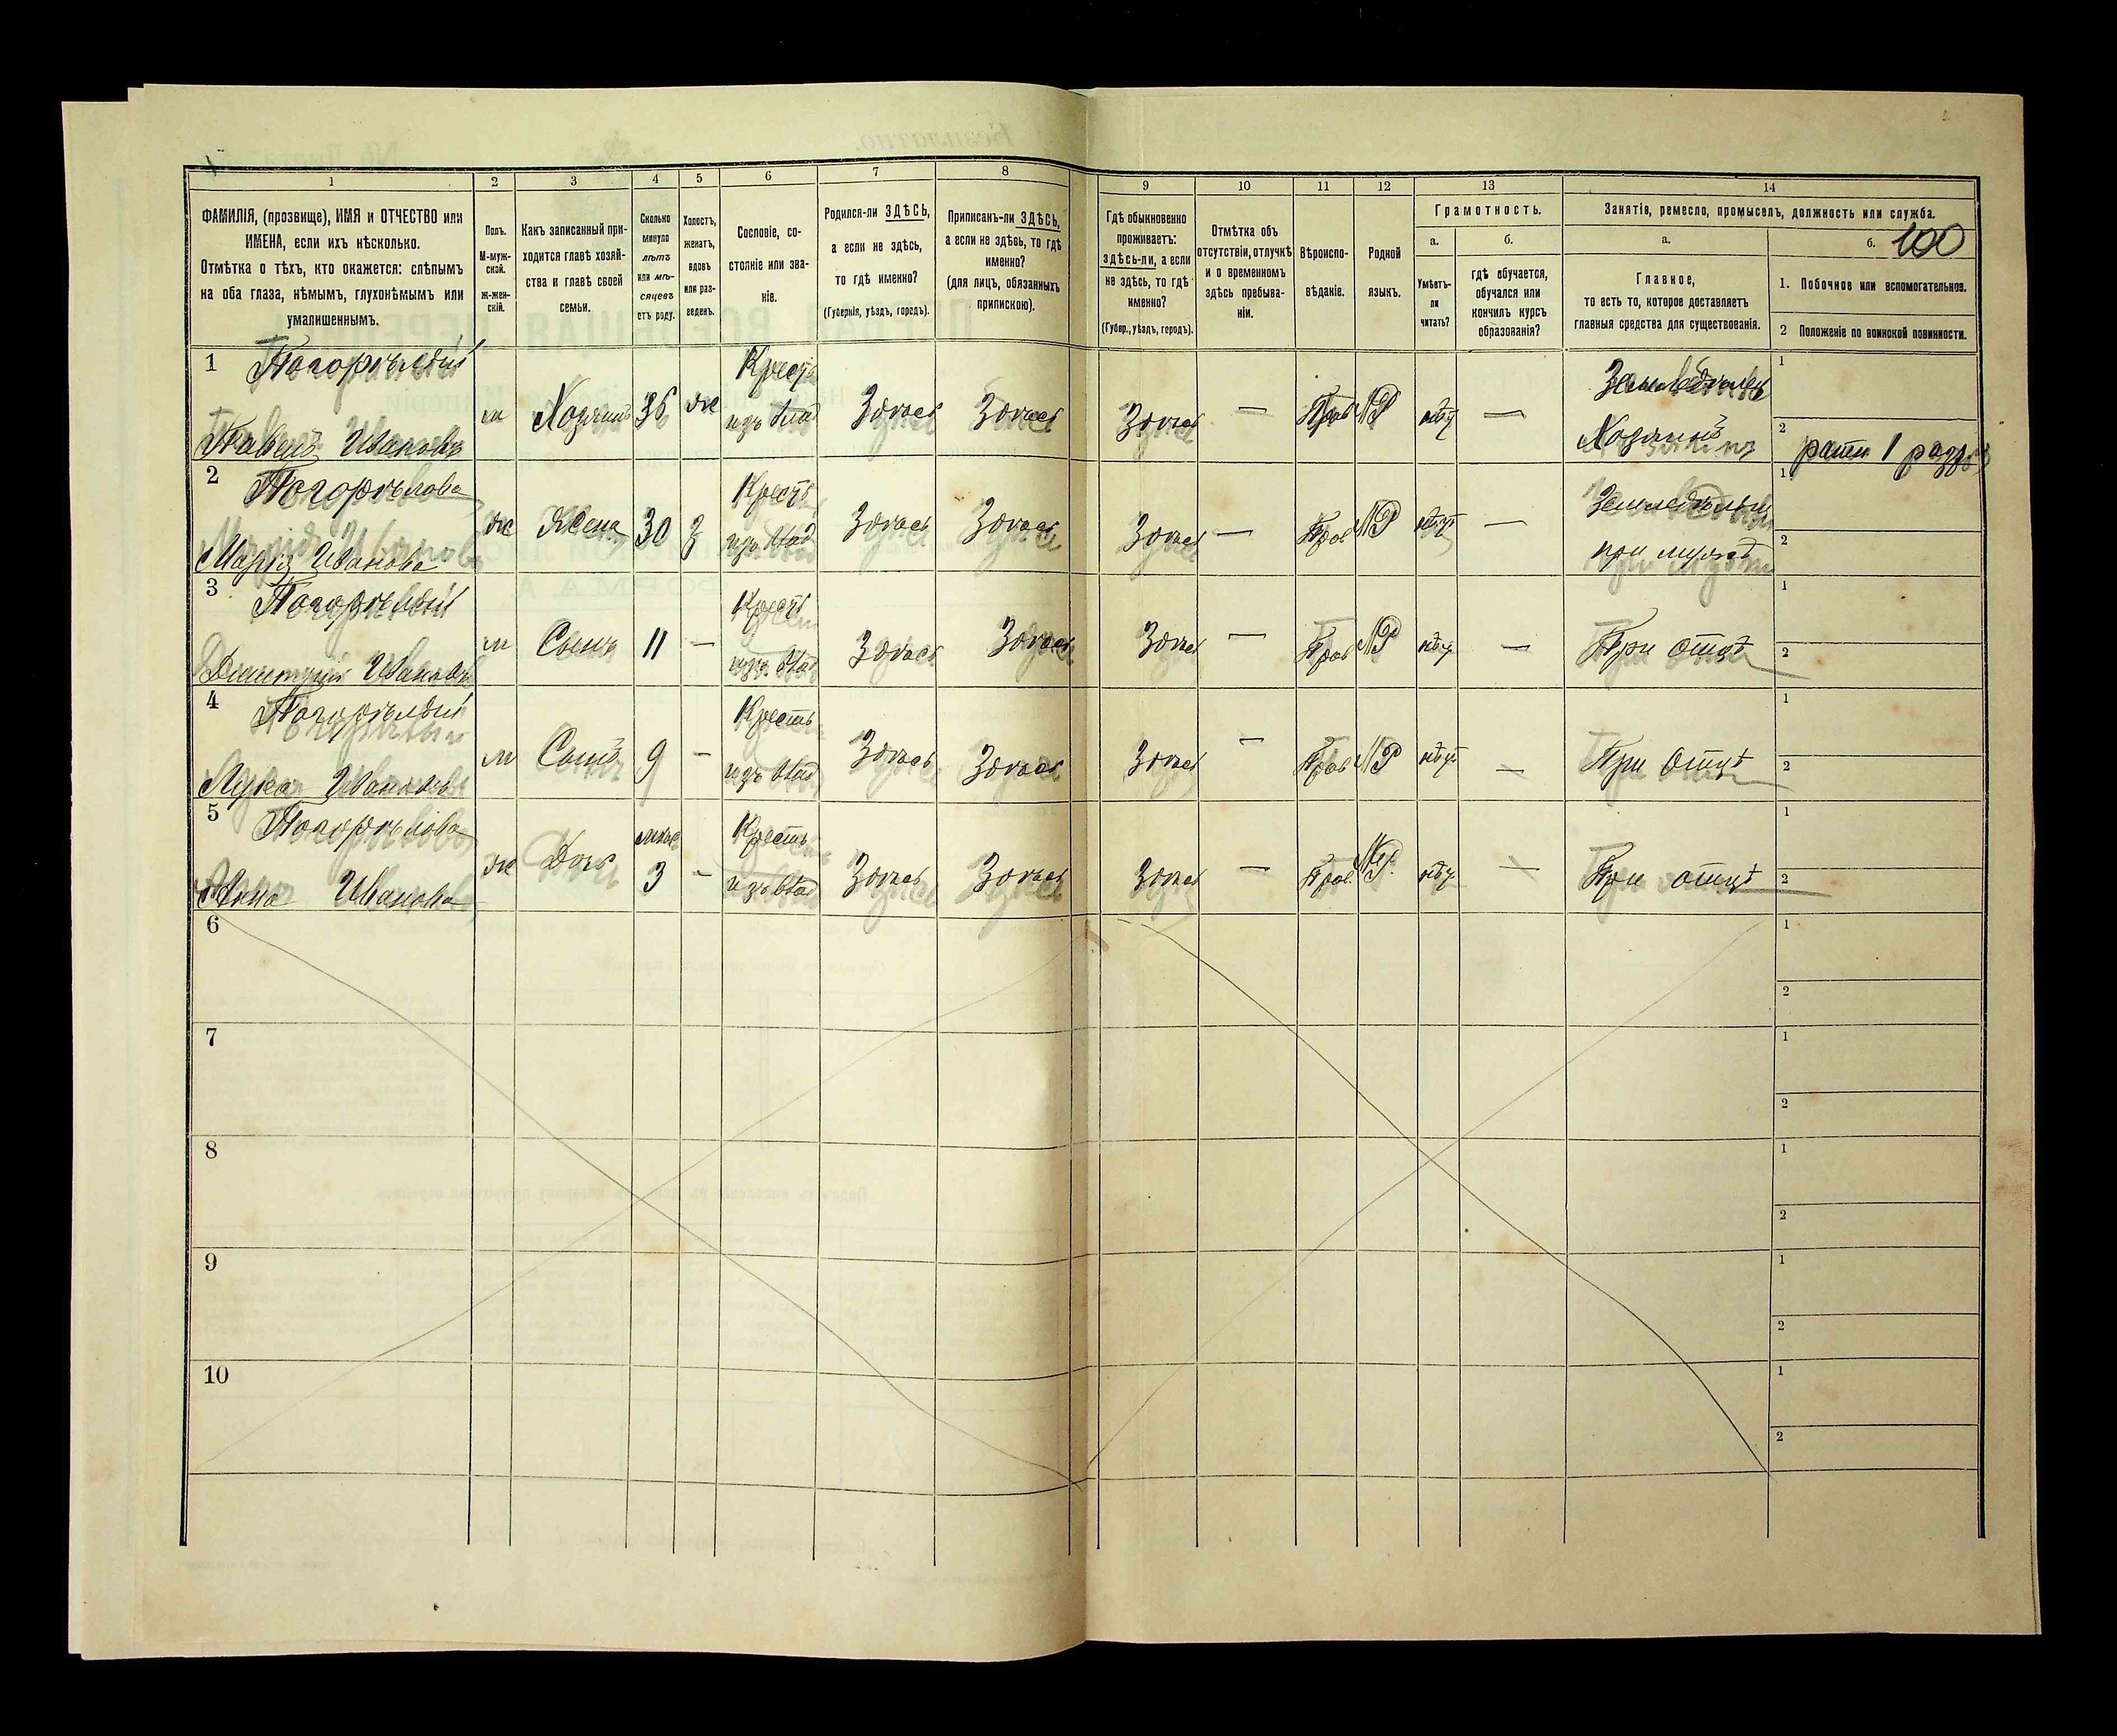 1 2 3 4 5 6 7 8 9 10 11 12 13 14
ФАМИЛІЯ, (прозвище), ИМЯ и ОТЧЕСТВО или
ИМЕНА, если ихъ нѣсколько.
Отмѣтка о тѣхъ, кто окажется: слѣпымъ
на оба глаза, нѣмымъ, глухонѣмымъ или
умалишеннымъ.
Полъ.
М-муж-
ской.
Ж-жен-
скій.
Какъ записанный при-
ходится главѣ хозяй-
ства и главѣ своей
семьи.
Сколько
минуло
лѣтъ
или мѣ-
сяцевъ
отъ роду.
Холостъ,
женатъ,
вдовъ
или раз-
веденъ.
Сословіе, со-
стояніе или зва-
ніе.
Родился-ли ЗДѢСЬ,
а если не здѣсь,
то гдѣ именно?
(Губернія, уѣздъ, городъ).
Приписанъ-ли ЗДѢСЬ,
а если не здѣсь, то гдѣ
именно?
(для лицъ, обязанныхъ
припискою).
Гдѣ обыкновенно
проживаетъ:
здѣсь-ли, а если
не здѣсь, то гдѣ
именно?
(Губер., уѣздъ, городъ).
Отмѣтка объ
отсутствіи, отлучкѣ
и о временномъ
здѣсь пребыва-
ніи.
Вѣроиспо-
вѣданіе.
Родной
языкъ.
Грамотность.
а.
Умѣетъ-
ли
читать?
б.
гдѣ обучается,
обучался или
кончилъ курсъ
образованія?
Занятіе, ремесло, промыселъ, должность или служба.
а.
Главное,
то есть то, которое доставляетъ
главныя средства для существованія.
б. 100
1. Побочное или вспомогательное.
2 Положеніе по воинской повинности.
1 Погорѣлый Крест Земледѣлецъ 1
Ивановъ м Хозяинъ 36 ж изъ влад Здѣсь Здѣсь Здѣсь — Прав МР нѣт — Хозяинъ 2 ратн 1 разр
2 Погорѣлова Крест Земледѣлец 1
Марія Иванова ж Жена 30 з изъ влад Здѣсь Здѣсь Здѣсь — Прав МР нѣт — при мужѣ 2
3 Погорѣлый Крест 1
Дмитрій Ивановъ м Сынъ 11 — изъ влад Здѣсь Здѣсь Здѣсь — Прав МР нѣт — При отцѣ 2
4 Погорѣлый Кресть 1
Лука Ивановъ м Сынъ 9 — изъ влад Здѣсь Здѣсь Здѣсь — Прав МР нѣт — При отцѣ 2
5 Погорѣлова Кресть 1
Анна Иванова ж Дочь 3 — изъ влад Здѣсь Здѣсь Здѣсь — Прав. МР. нѣт — При отцѣ 2
6 1
2
7 1
2
8 1
2
9 1
2
10 1
2